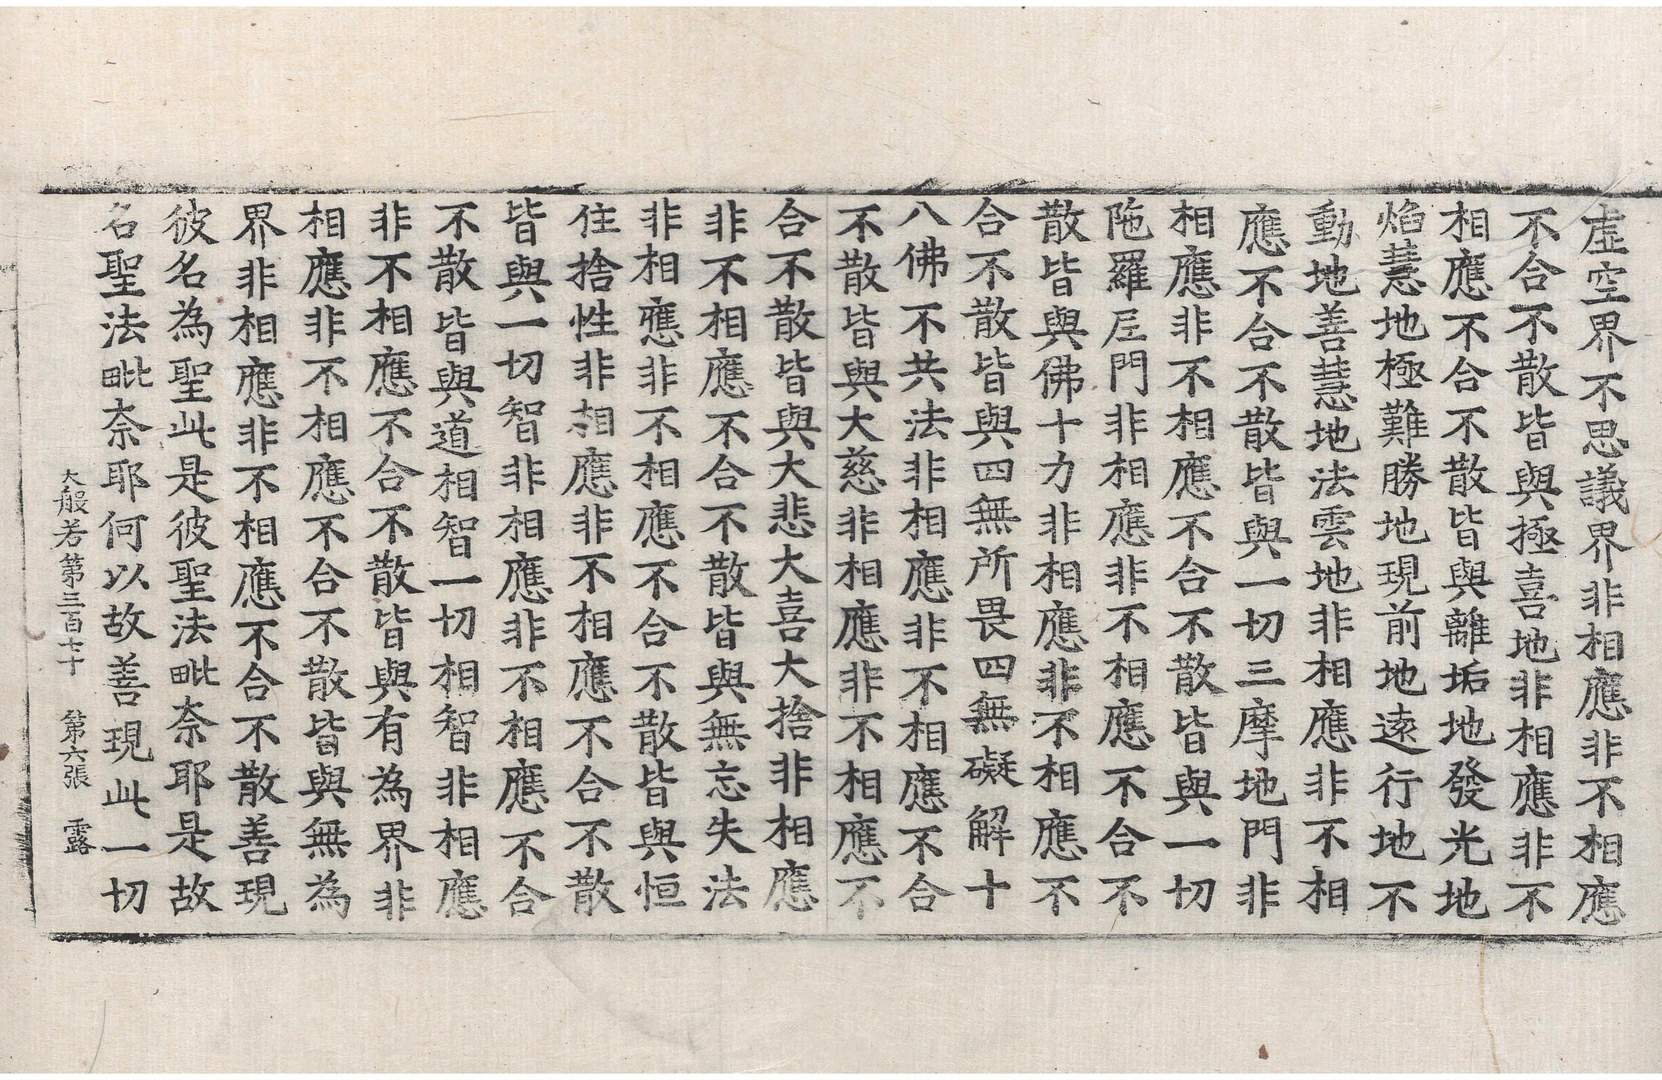 虛空界不思議界非相應非不相應
不合不散皆與極喜地非相應非不
相應不合不散皆與離垢地發光地
焰慧地極難勝地現前地遠行地不
動地善慧地法雲地非相應非不相
應不合不散皆與一切三摩地門非
相應非不相應不合不散皆與一切
陁羅尼門非相應非不相應不合不
散皆與佛十力非相應非不相應不
合不散皆與四無所畏四無礙解十
八佛不共法非相應非不相應不合
不散皆與大慈非相應非不相應不
合不散皆與大悲大喜大捨非相應
非不相應不合不散皆與無忘失法
非相應非不相應不合不散皆與恒
住捨性非相應非不相應不合不散
皆與一切智非相應非不相應不合
不散皆與道相智一切相智非相應
非不相應不合不散皆與有為界非
相應非不相應不合不散皆與無為
界非相應非不相應不合不散善現
彼名為聖此是彼聖法毗奈耶是故
名聖法毗奈耶何以故善現此一切
大般若第三百七十 第六張 露